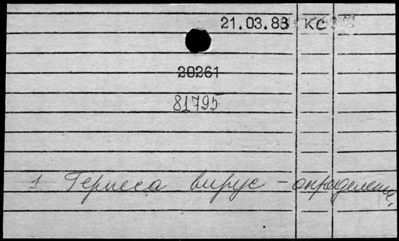 21.03.83 КС
20261
81795
1 Герпеса вирус – определение,